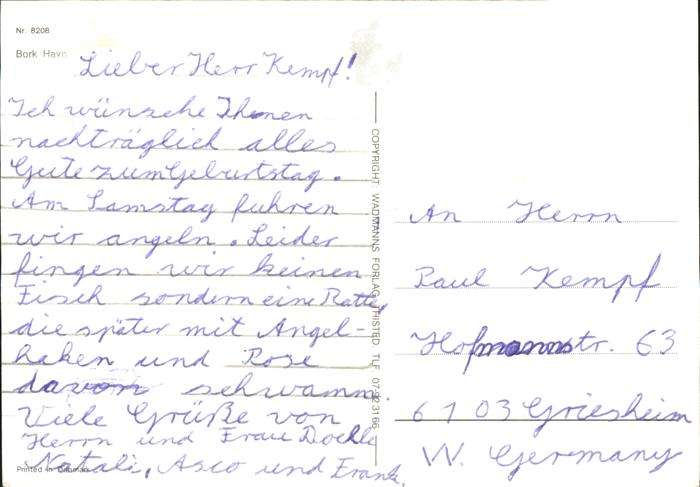 Nr. 8208
Bork Havn
Lieber Herr Kempf!
Ich wünsche Ihnen
nachträglich alles
Gute zum Geburtstag.
Am Samstag fuhren
wir angeln. Leider
fingen wir keinen
Fisch sondern eine Ratte,
die später mit Angel-
haken und Pose
davon schwamm.
Viele Grüße von
Herrn und Frau
Natali, Asco und Frank.
Printed in Denmark
COPYRIGHT WADMANNS FORLAG THISTED TLF
An Herrn
Paul Kempf
Hofmannstr. 63
6103 Griesheim
W. Germany